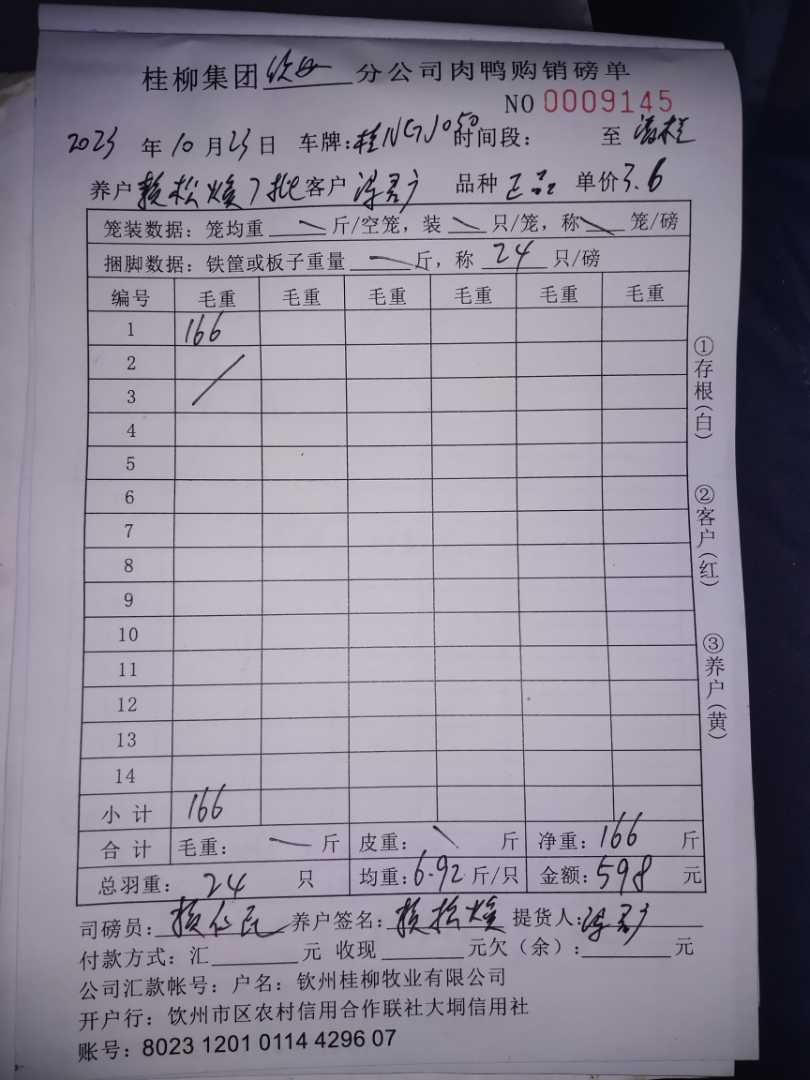 桂柳集团 钦州 分公司肉鸭购销磅单
NO 0009145
2023 年 10 月 23 日 车牌: 桂NGJ050 时间段: 至
养户 赖松焕7批 客户 品种 正品 单价 3.6
笼装数据: 笼均重 斤/空笼, 装 只/笼, 称 笼/磅
捆脚数据: 铁筐或板子重量 斤, 称 24 只/磅
编号 毛重 毛重 毛重 毛重 毛重 毛重
1 166
2
3
4
5
6
7
8
9
10
11
12
13
14
小计 166
合计 毛重: 斤 皮重: 斤 净重: 166 斤
总羽重: 24 只 均重: 6.92 斤/只 金额: 598 元
司磅员: 养户签名: 赖松焕 提货人:
付款方式: 汇 元 收现 元欠(余): 元
公司汇款帐号: 户名: 钦州桂柳牧业有限公司
开户行: 钦州市区农村信用合作联社大垌信用社
账号: 8023 1201 0114 4296 07
①存根(白)
②客户(红)
③养户(黄)